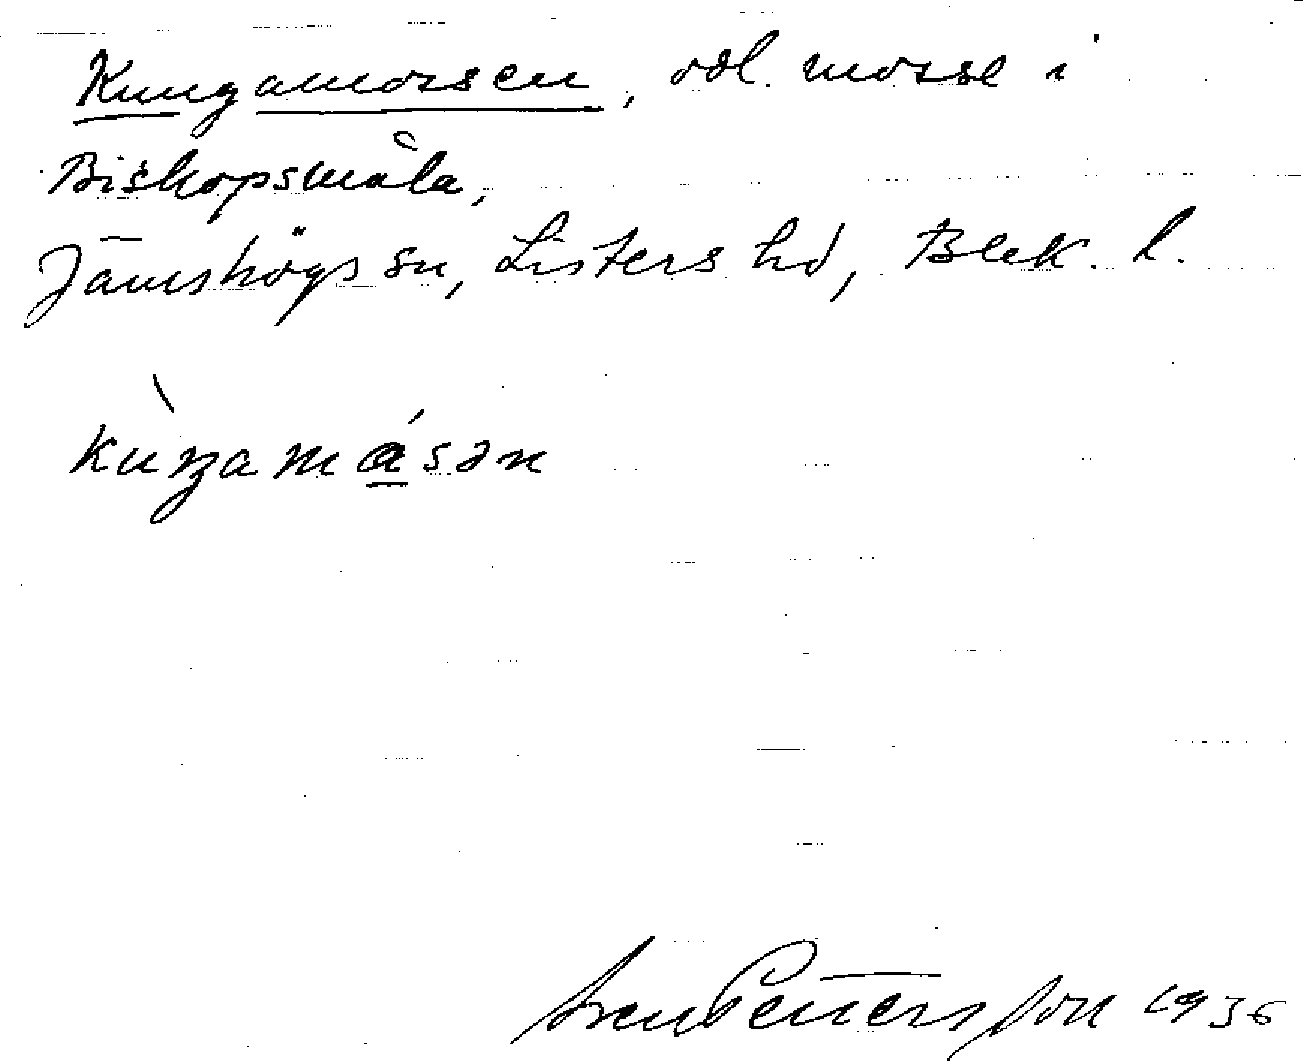 Kungamossen, odl. mosse i
Biskopsmåla,
Jämshögs sn, Listers hd, Blek. l.
kùŋamásən
Sven Petersson 1936